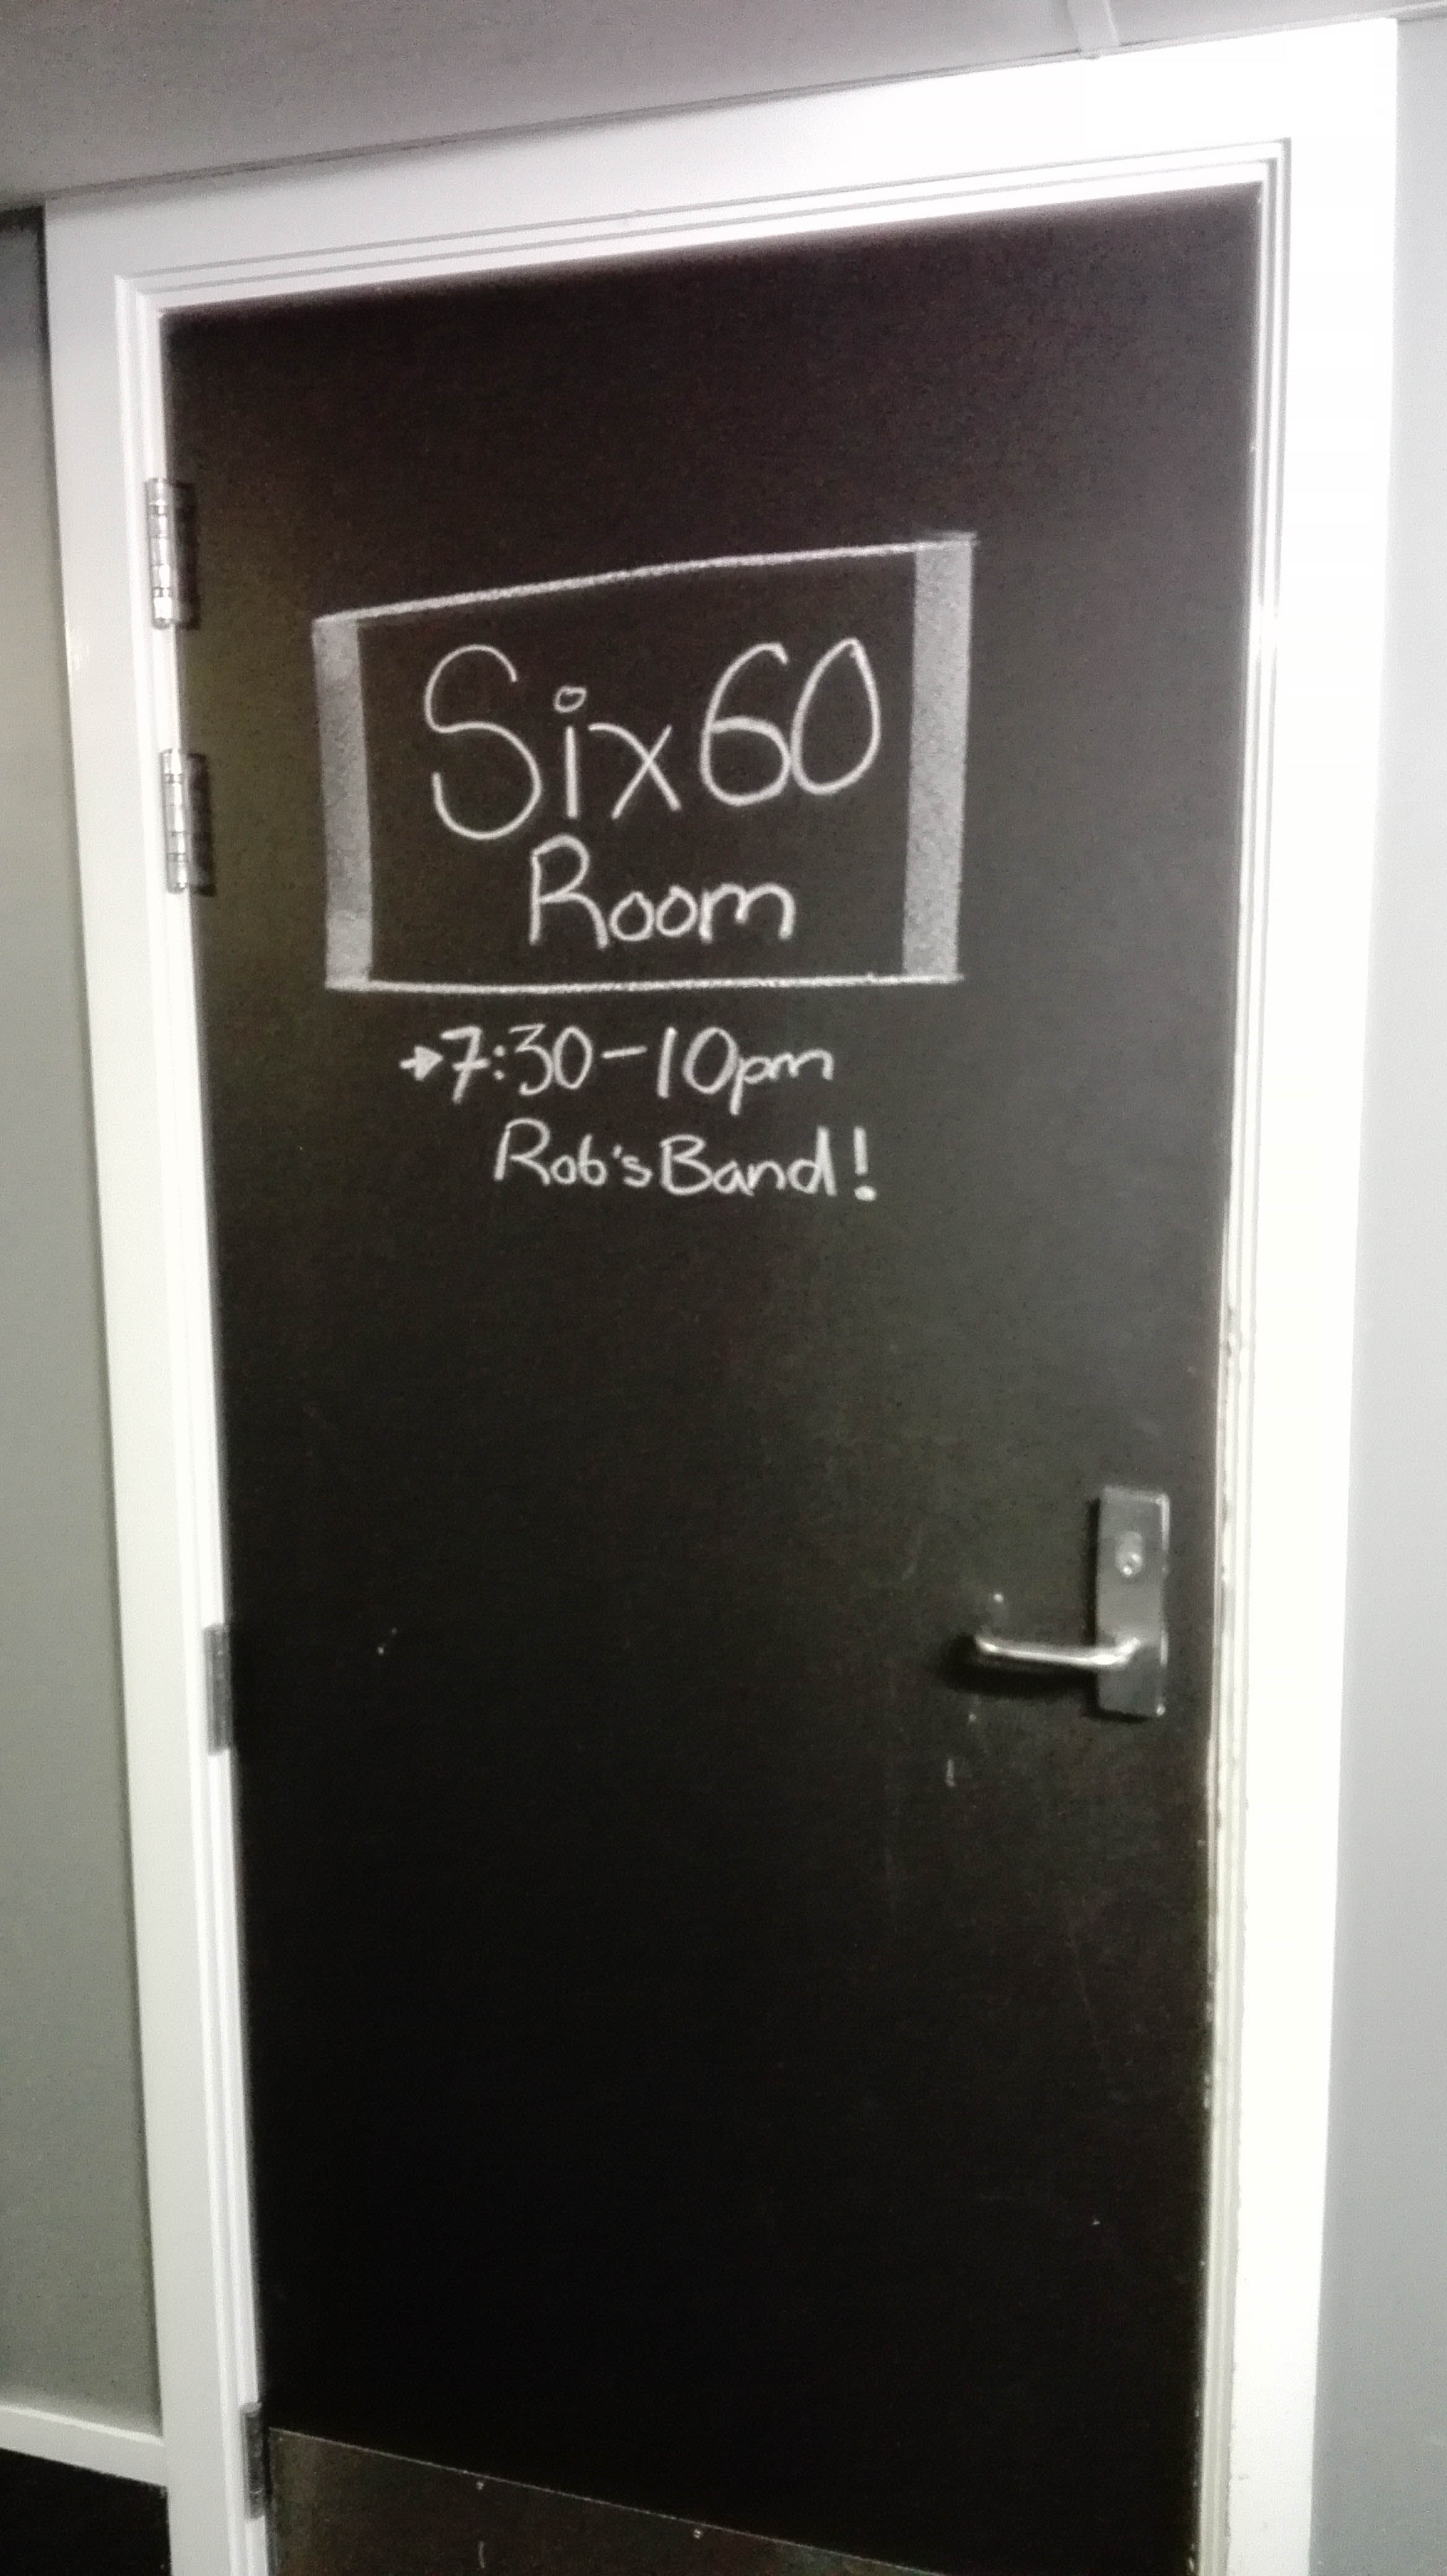 Six60
Room
→7:30-10pm
Rob's Band!